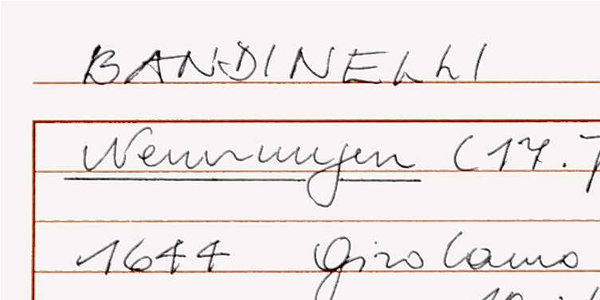 BANDINELLI
Nennungen (17. J
1644 Girolamo